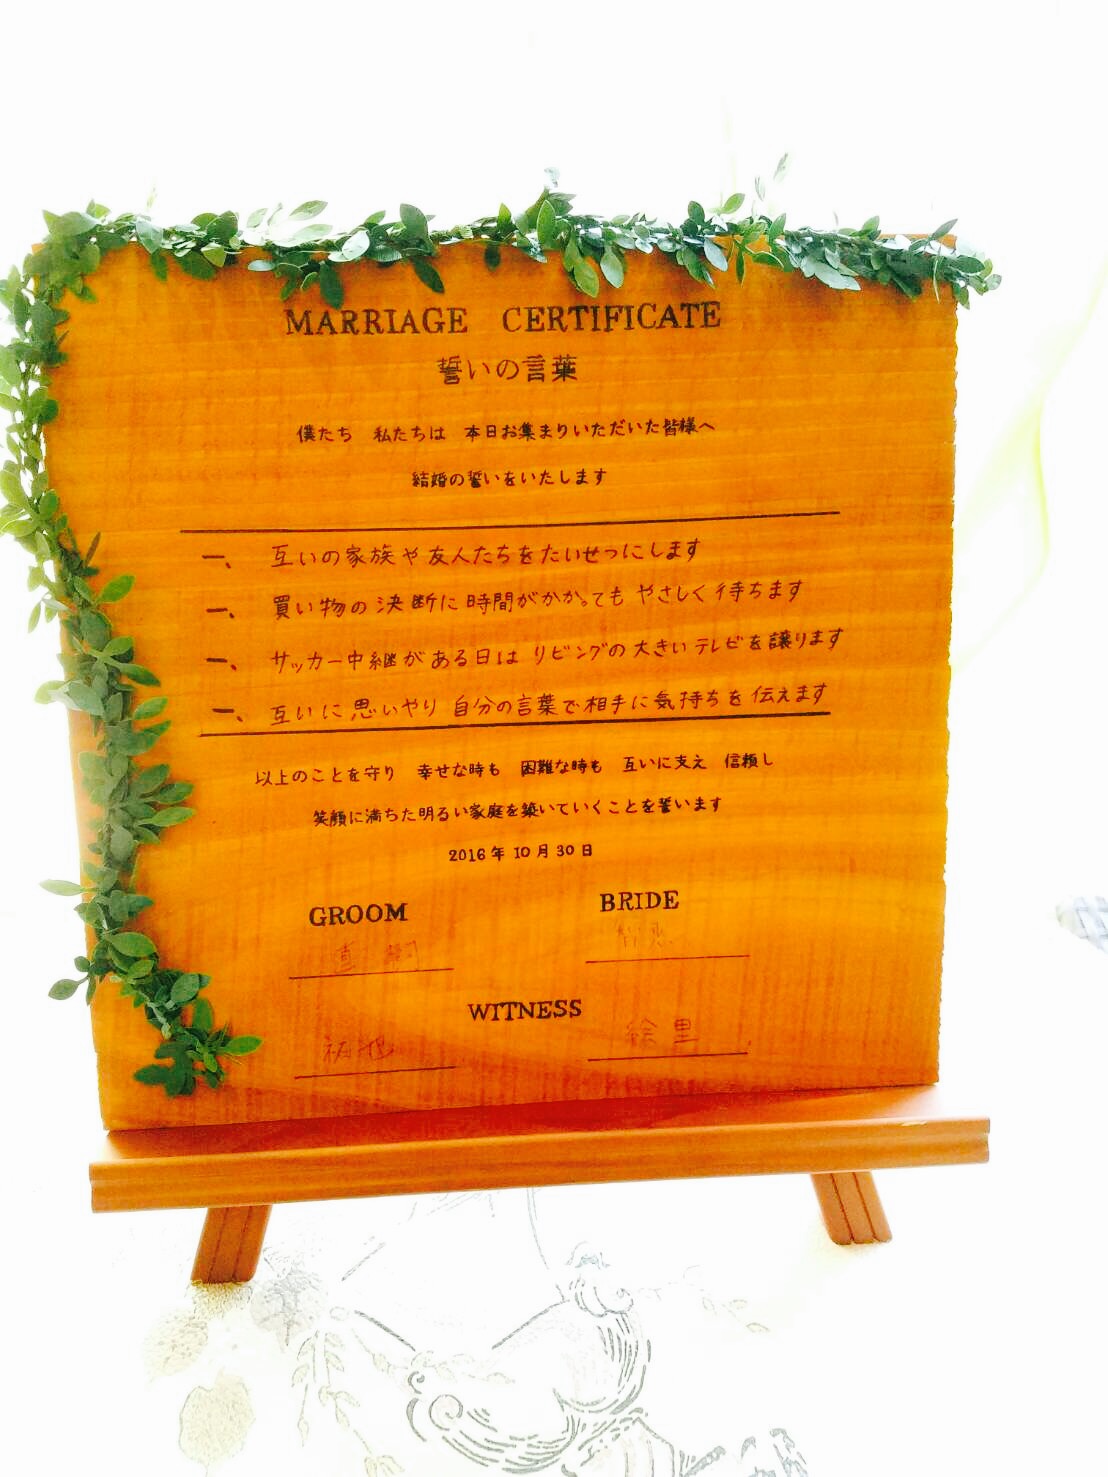 MARRIAGE CERTIFICATE
誓いの言葉
僕たち 私たちは 本日お集まりいただいた皆様へ
結婚の誓いをいたします
一、 互いの家族や友人たちをたいせつにします
一、 買い物の決断に時間がかかってもやさしく待ちます
一、 サッカー中継がある日はリビングの大きいテレビを譲ります
一、 互いに思いやり自分の言葉で相手に気持ちを伝えます
以上のことを守り 幸せな時も 困難な時も 互いに支え 信頼し
笑顔に満ちた明るい家庭を築いていくことを誓います
2016年10月30日
GROOM BRIDE
智恵
WITNESS
絵里